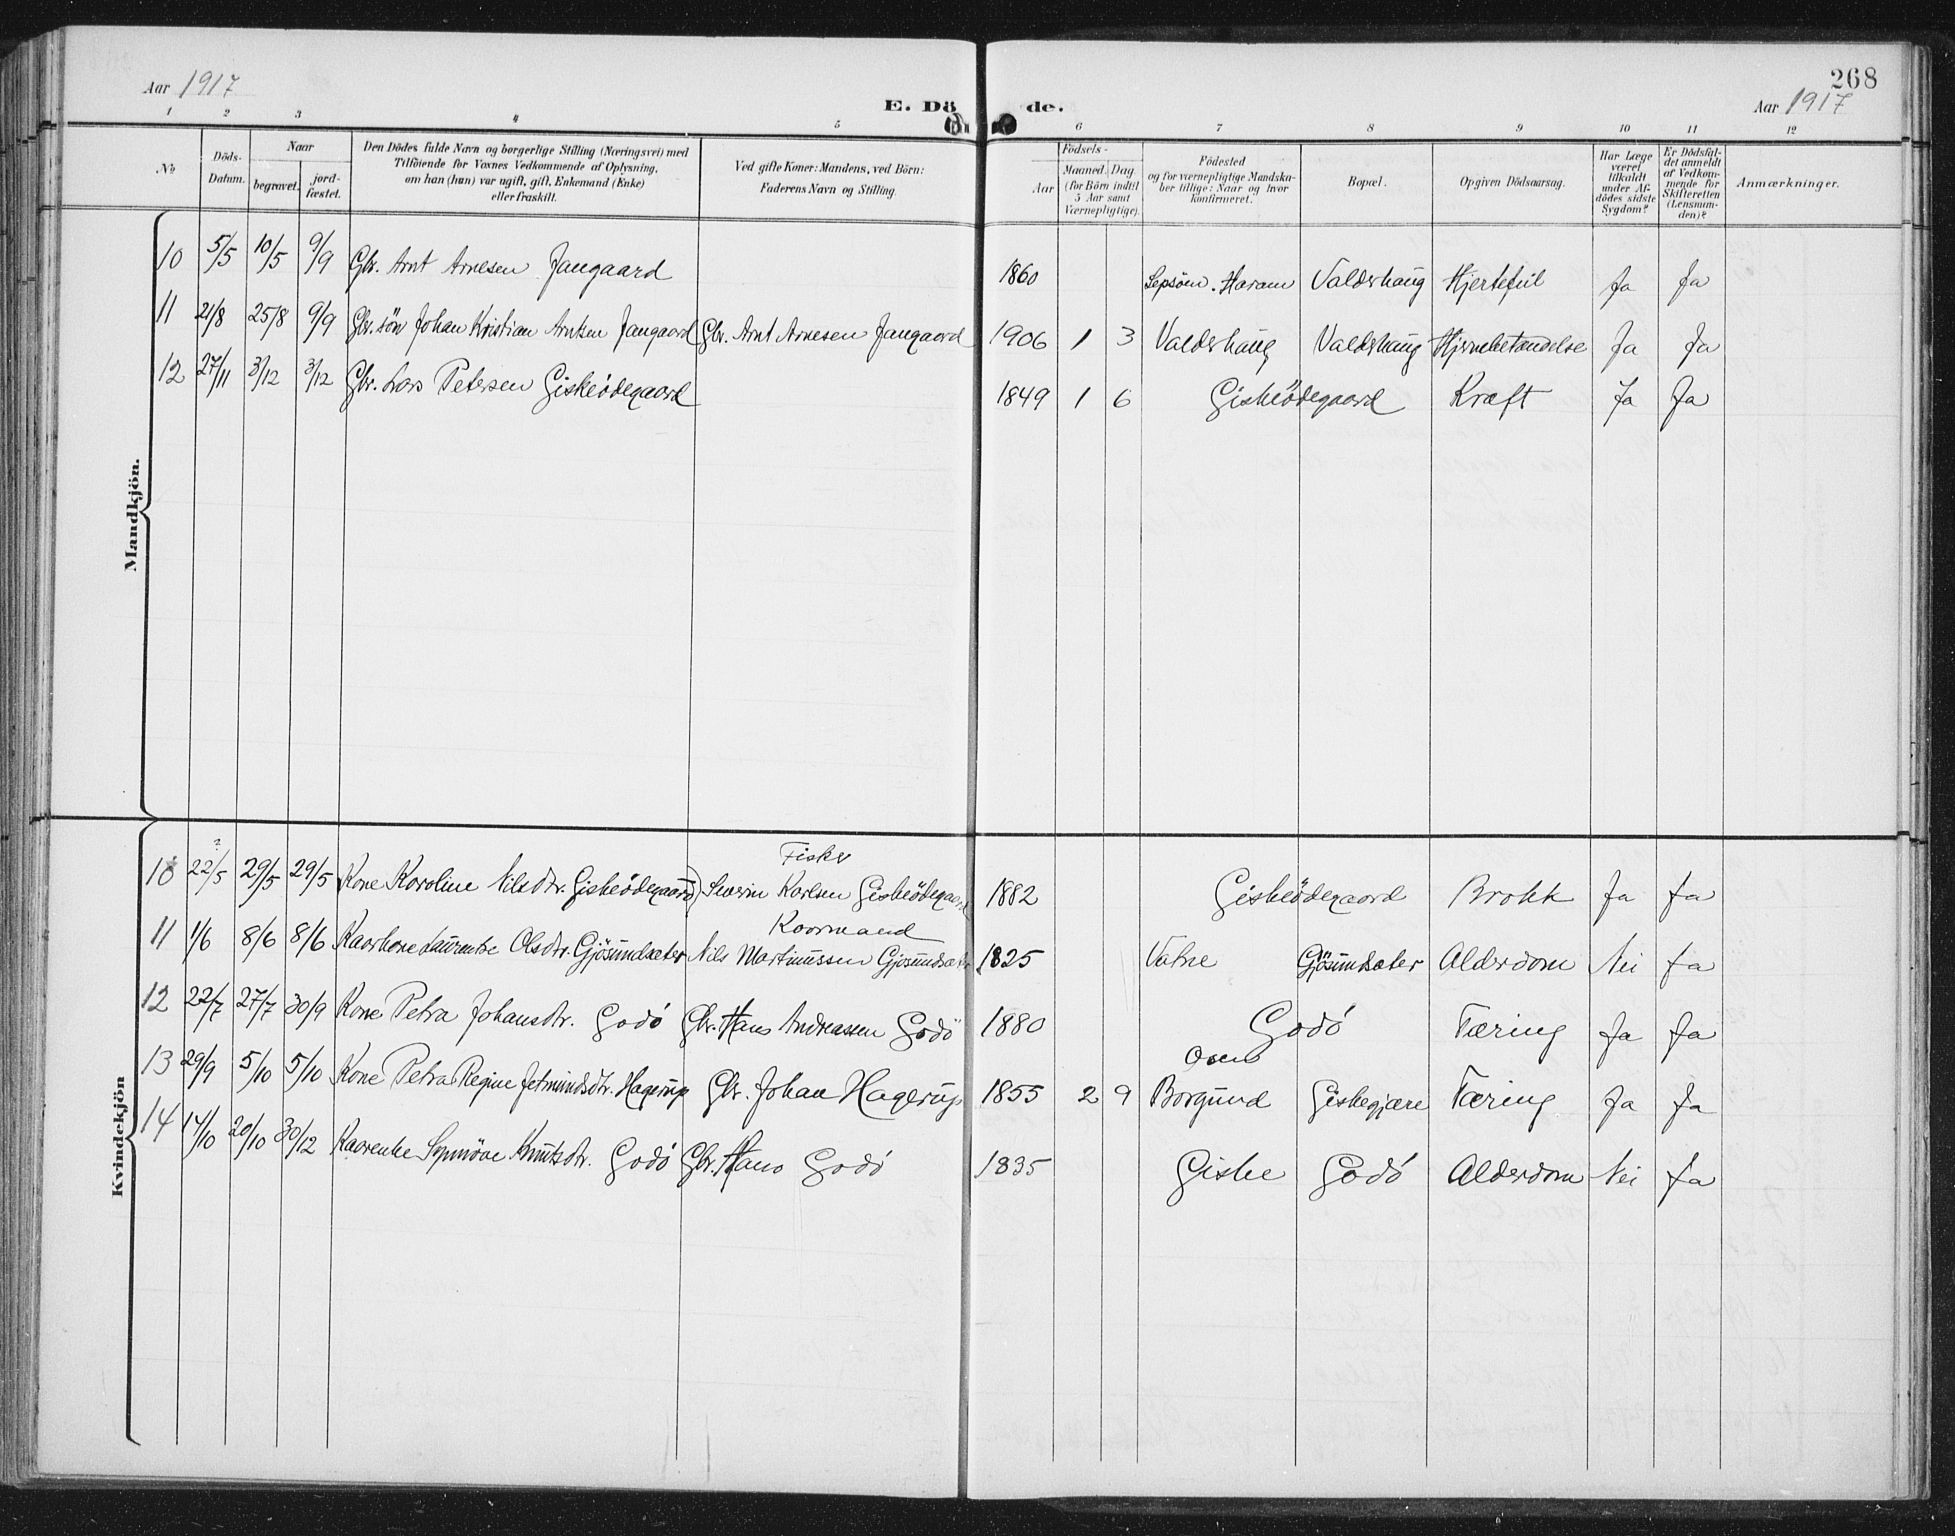 268
Aar 1917
E. Dö de.
Aar 1917
1 2 3 4 5 6 7 8 9 10 11 12
No.
Döds-Datum.
Naar
begravet.
jord-fæstet.
Den Dödes fulde Navn og borgerlige Stilling (Næringsvei) med
Tilföiende for Voxnes Vedkommende af Oplysning,
om han (hun) var ugift, gift, Enkemand (Enke)
eller fraskilt.
Ved gifte Koner: Mandens, ved Börn:
Faderens Navn og Stilling.
Födsels-
Aar
Maaned. Dag
(for Börn indtil
5 Aar samt
Værnepligtige).
Födested
og for værnepligtige Mandska-
ber tillige: Naar og hvor
konfirmeret.
Bopæl.
Opgiven Dödsaarsag.
Har Læge
været
tilkaldt
under Af-
dödes sidste
Sygdom?
Er Dödsfal-
det anmeldt
af Vedkom-
mende for
Skifteretten
(Lensman-
den)?
Anmærkninger.
Mandkjön.
10 5/5 10/5 9/9 Gbr. Arnt Arnesen Jangaard 1860 Lepsöen. Haram Valderhaug Hjertefeil Ja Ja
11 21/8 25/8 9/9 Gbr. sön Johan Kristian Arntsen Jangaard Gbr. Arnt Arnesen Jangaard 1906 1 3 Valderhaug Valderhaug Hjernebetændelse Ja Ja
12 27/11 3/12 3/12 Gbr. Lars Petersen Giskeödegaard 1849 1 6 Giskeödegaard Kræft Ja Ja
Kvindekjön
?
Fisker
10 22/5 29/5 29/5 Kone Karoline Nilsdtr. Giskeödegaard) Severin Karlsen Giskeödegaard 1882 Giskeödegaard Brokk Ja Ja
Kaarmand
11 1/6 8/6 8/6 Kaarkone Laurentse Olsdtr. Gjösundsæter Nils Martinussen Gjösundsæter 1825 Vatne Gjösundsæter Alderdom Nei Ja
12 22/7 27/7 30/9 Kone Petra Johansdtr. Godö Gbr. Hans Andreassen Godö 1880 Godö Tæring Ja Ja
Osen
13 29/9 5/10 5/10 Kone Petra Regine Jetmundsdtr. Hagerup Gbr. Johan Hagerup 1855 2 9 Borgund Giskegjære Tæring Ja Ja
14 14/10 20/10 30/12 Kaarenke Synnöve Knutsdtr. Godö Gbr. Hans Godö 1835 Giske Godö Alderdom Nei Ja